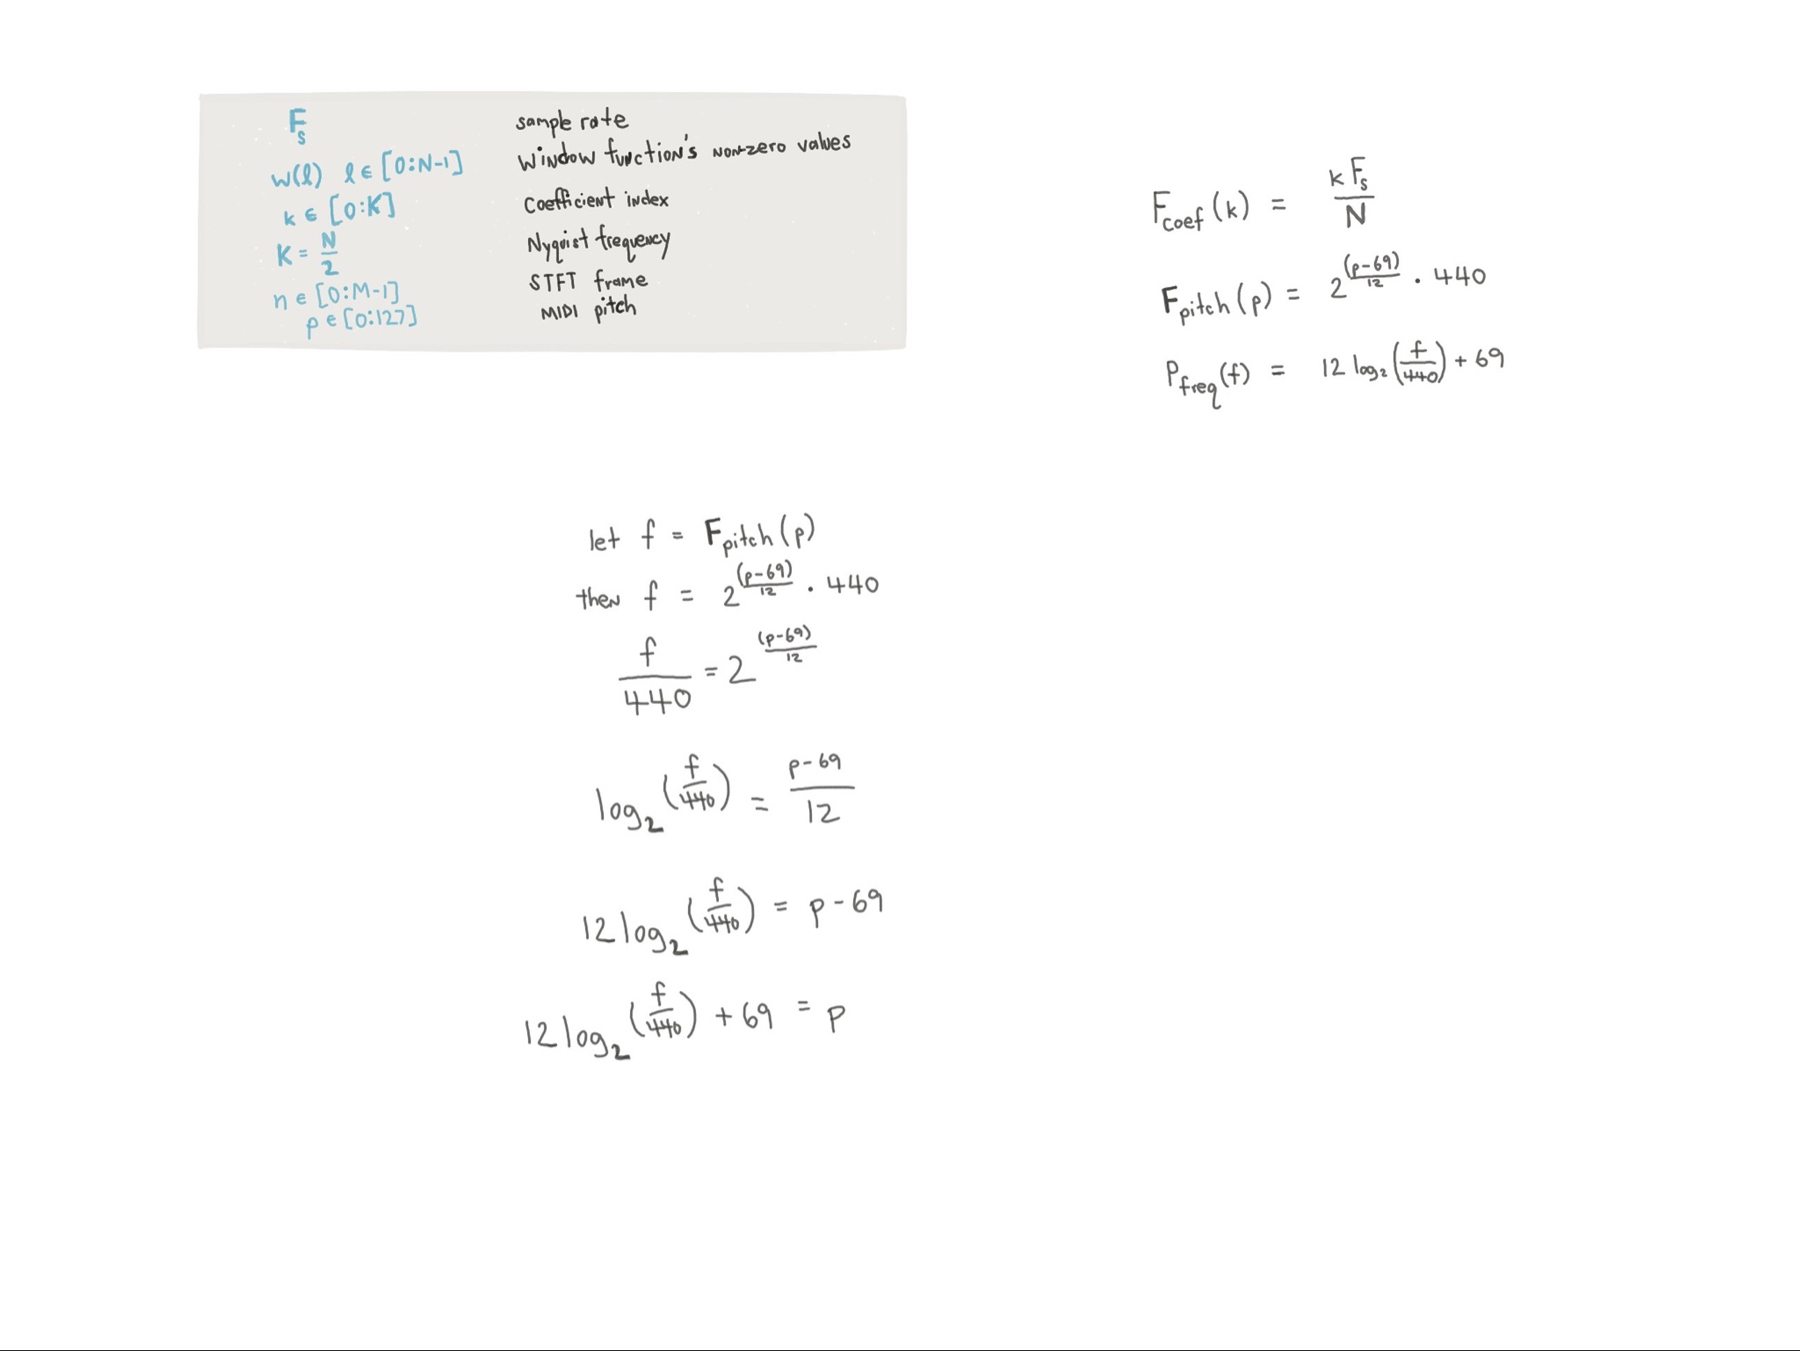 F_s sample rate
w(l) l ∈ [0:N-1] window function's non-zero values
k ∈ [0:K] coefficient index
K = N/2 Nyquist frequency
n ∈ [0:M-1] STFT frame
p ∈ [0:127] MIDI pitch
F_coef(k) = k F_s / N
F_pitch(p) = 2^((p-69)/12) · 440
P_freq(f) = 12 log_2(f/440) + 69
let f = F_pitch(p)
then f = 2^((p-69)/12) · 440
f/440 = 2^((p-69)/12)
log_2(f/440) = (p-69)/12
12 log_2(f/440) = p - 69
12 log_2(f/440) + 69 = p